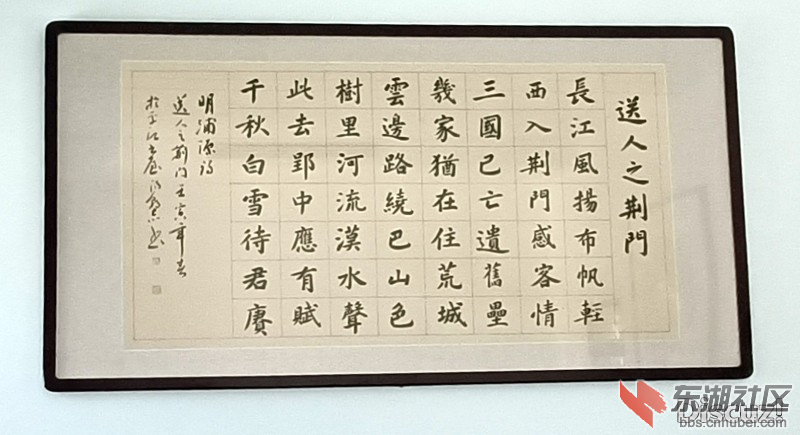 送人之荆門
長江風揚布帆輕
西入荆門感客情
三國已亡遺舊壘
幾家猶在住荒城
雲邊路繞巴山色
樹里河流漠水聲
此去郢中應有賦
千秋白雪待君賡
明浦源詩
送人之荆门壬寅年春
东湖社区
bbs.cnhubei.com